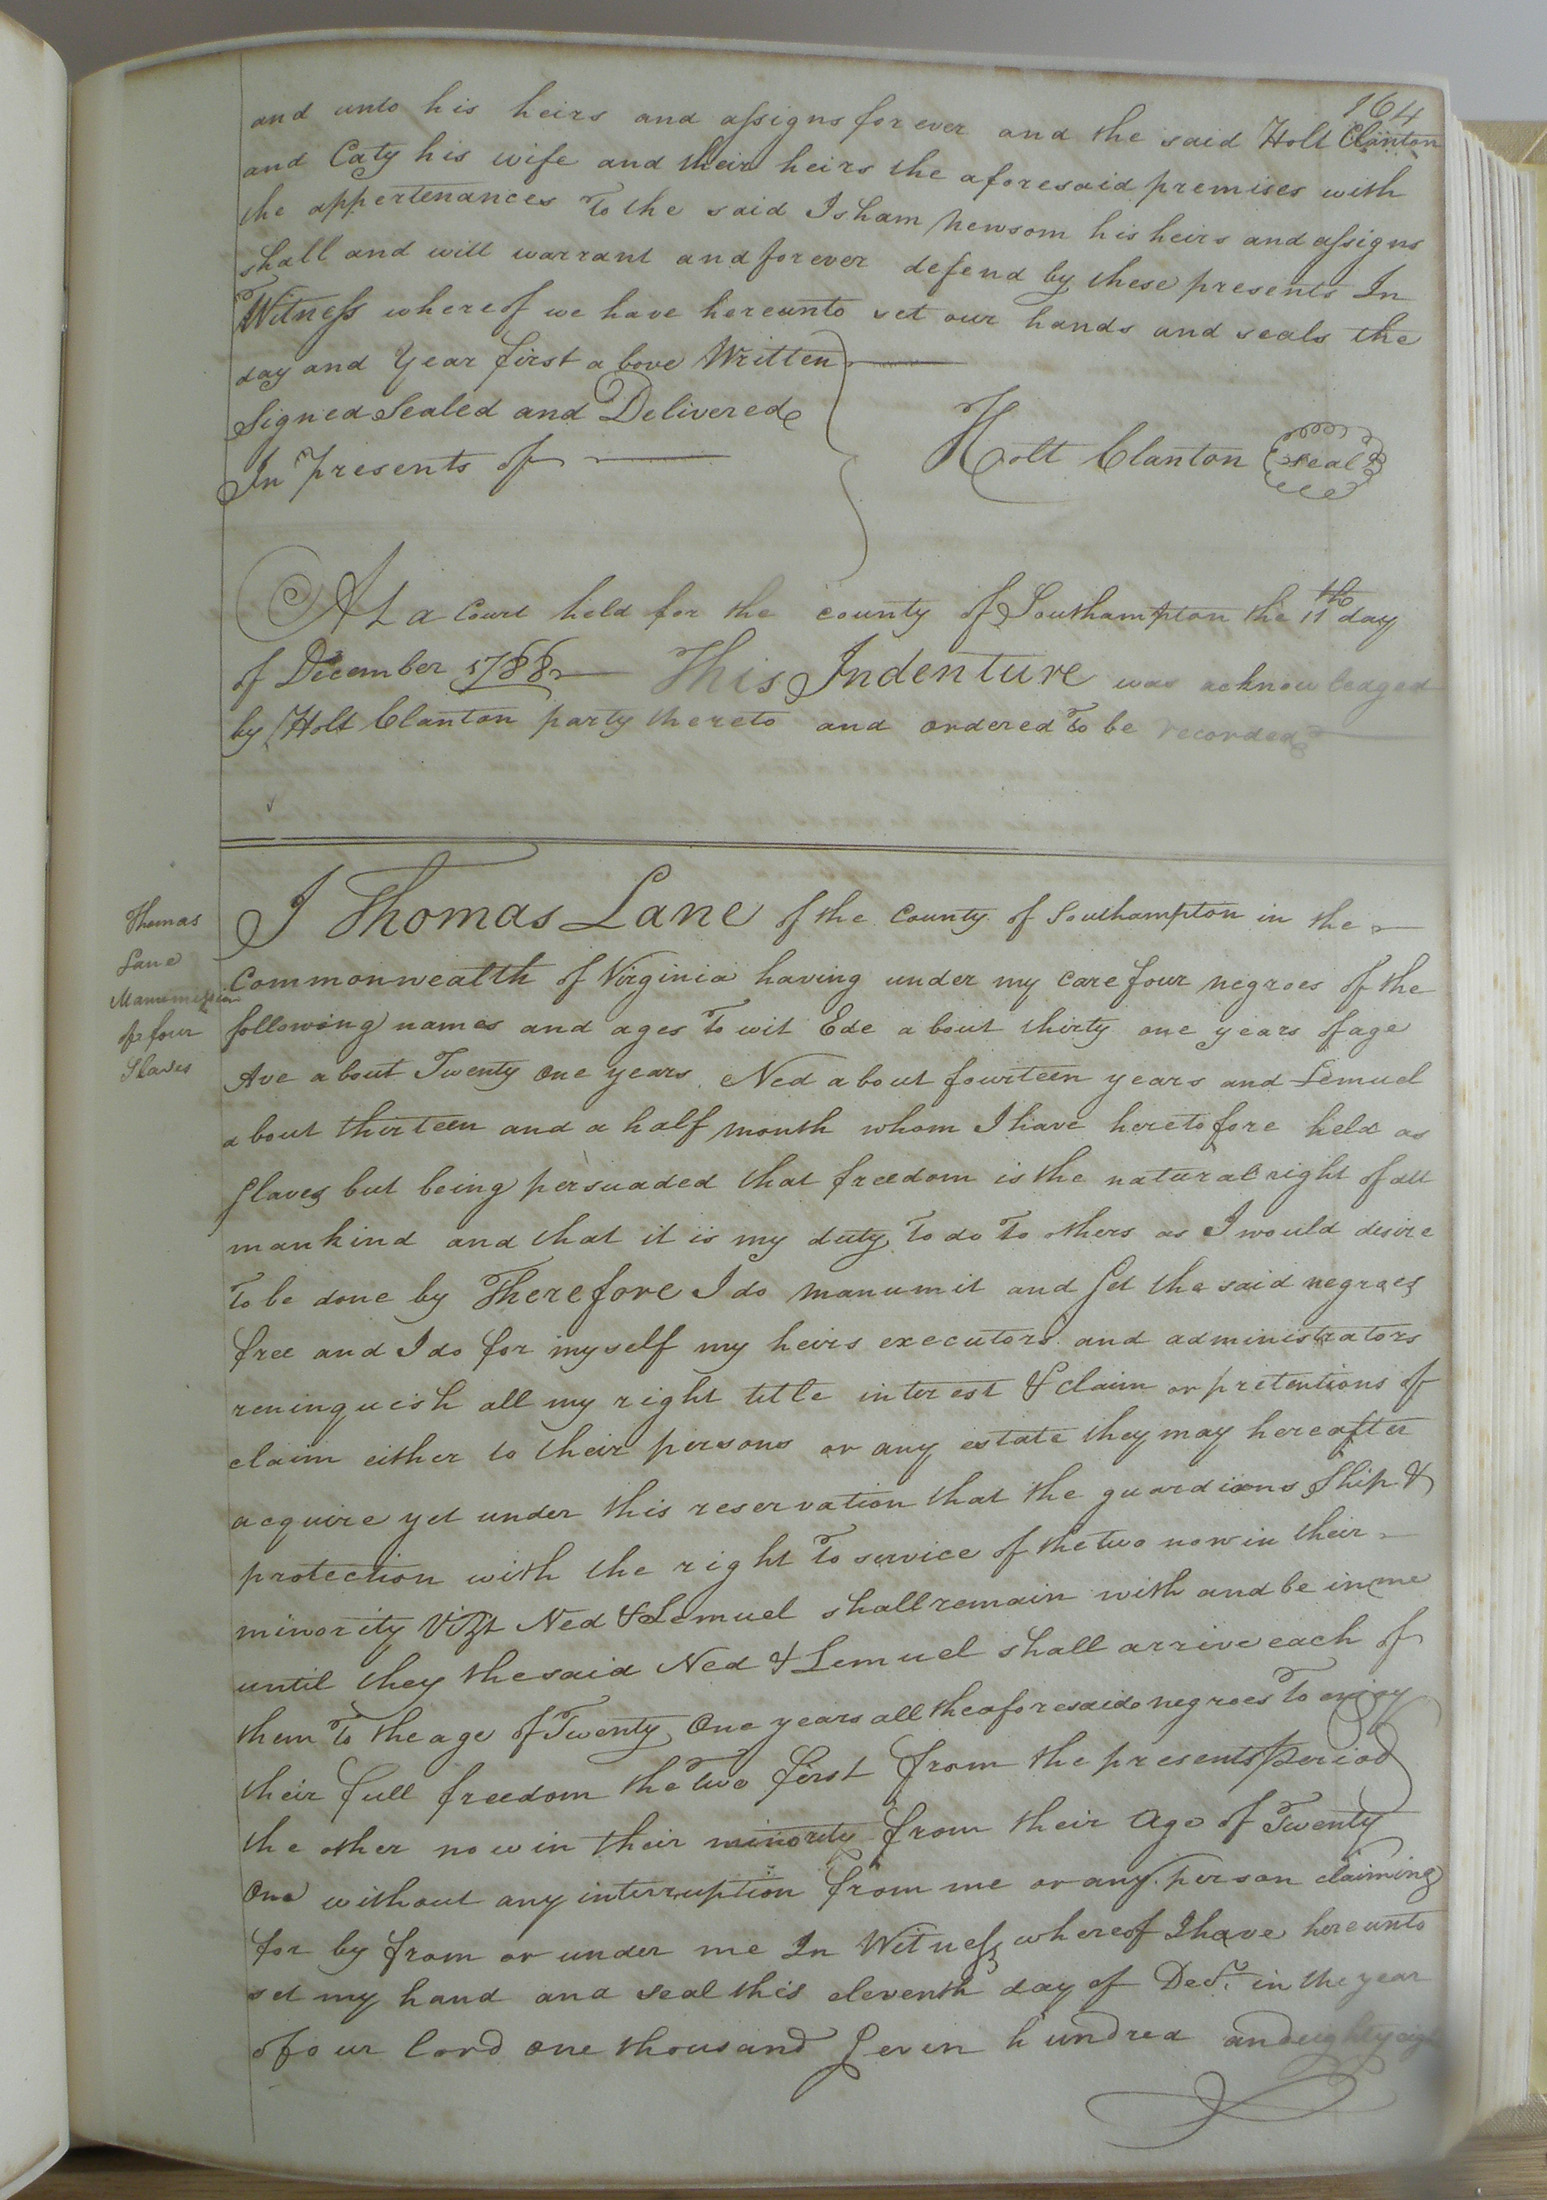 164
and unto his heirs and assigns for ever and the said Holt Clanton
and Caty his wife and their heirs the aforesaid premises with
the appertenances To the said Isham Newsom his heirs and assigns
shall and will warrant and forever defend by these presents In
Witness whereof we have hereunto set our hands and seals the
day and Year first above Written
Signed Sealed and Delivered
In Presents of
Holt Clanton (Seal)
At a Court held for the county of Southampton the 11th day
of December 1788 This Indenture was acknowledged
by Holt Clanton party thereto and ordered To be recorded
Thomas
Lane
Manumission
of four
Slaves
I Thomas Lane of the County of Southampton in the
Commonwealth of Virginia having under my care four negroes of the
following names and ages To wit Ede about thirty one years of age
Ave about Twenty One years Ned about fourteen years and Lemuel
about thirteen and a half month whom I have heretofore held as
Slaves but being persuaded that freedom is the natural right of all
mankind and that it is my duty To do To others as I would desire
To be done by Therefore I do manumit and Set the said negroes
free and I do for myself my heirs executors and administrators
reninquish all my right title interest & claim or pretentions of
claim either to their persons or any estate they may hereafter
acquire yet under this reservation that the guardians Ship &
protection with the right To service of the two now in their
minority Vizt Ned & Lemuel shall remain with and be in me
until they the said Ned & Lemuel shall arrive each of
them To the age of Twenty One years all the aforesaid negroes To enjoy
their full freedom the Two first from the presents Period
the other now in their minority from their Age of Twenty
One without any interruption from me or any person claiming
for by from or under me In Witness whereof I have hereunto
set my hand and seal this eleventh day of Decr. in the year
of our Lord One thousand Seven hundred and eighty eigh